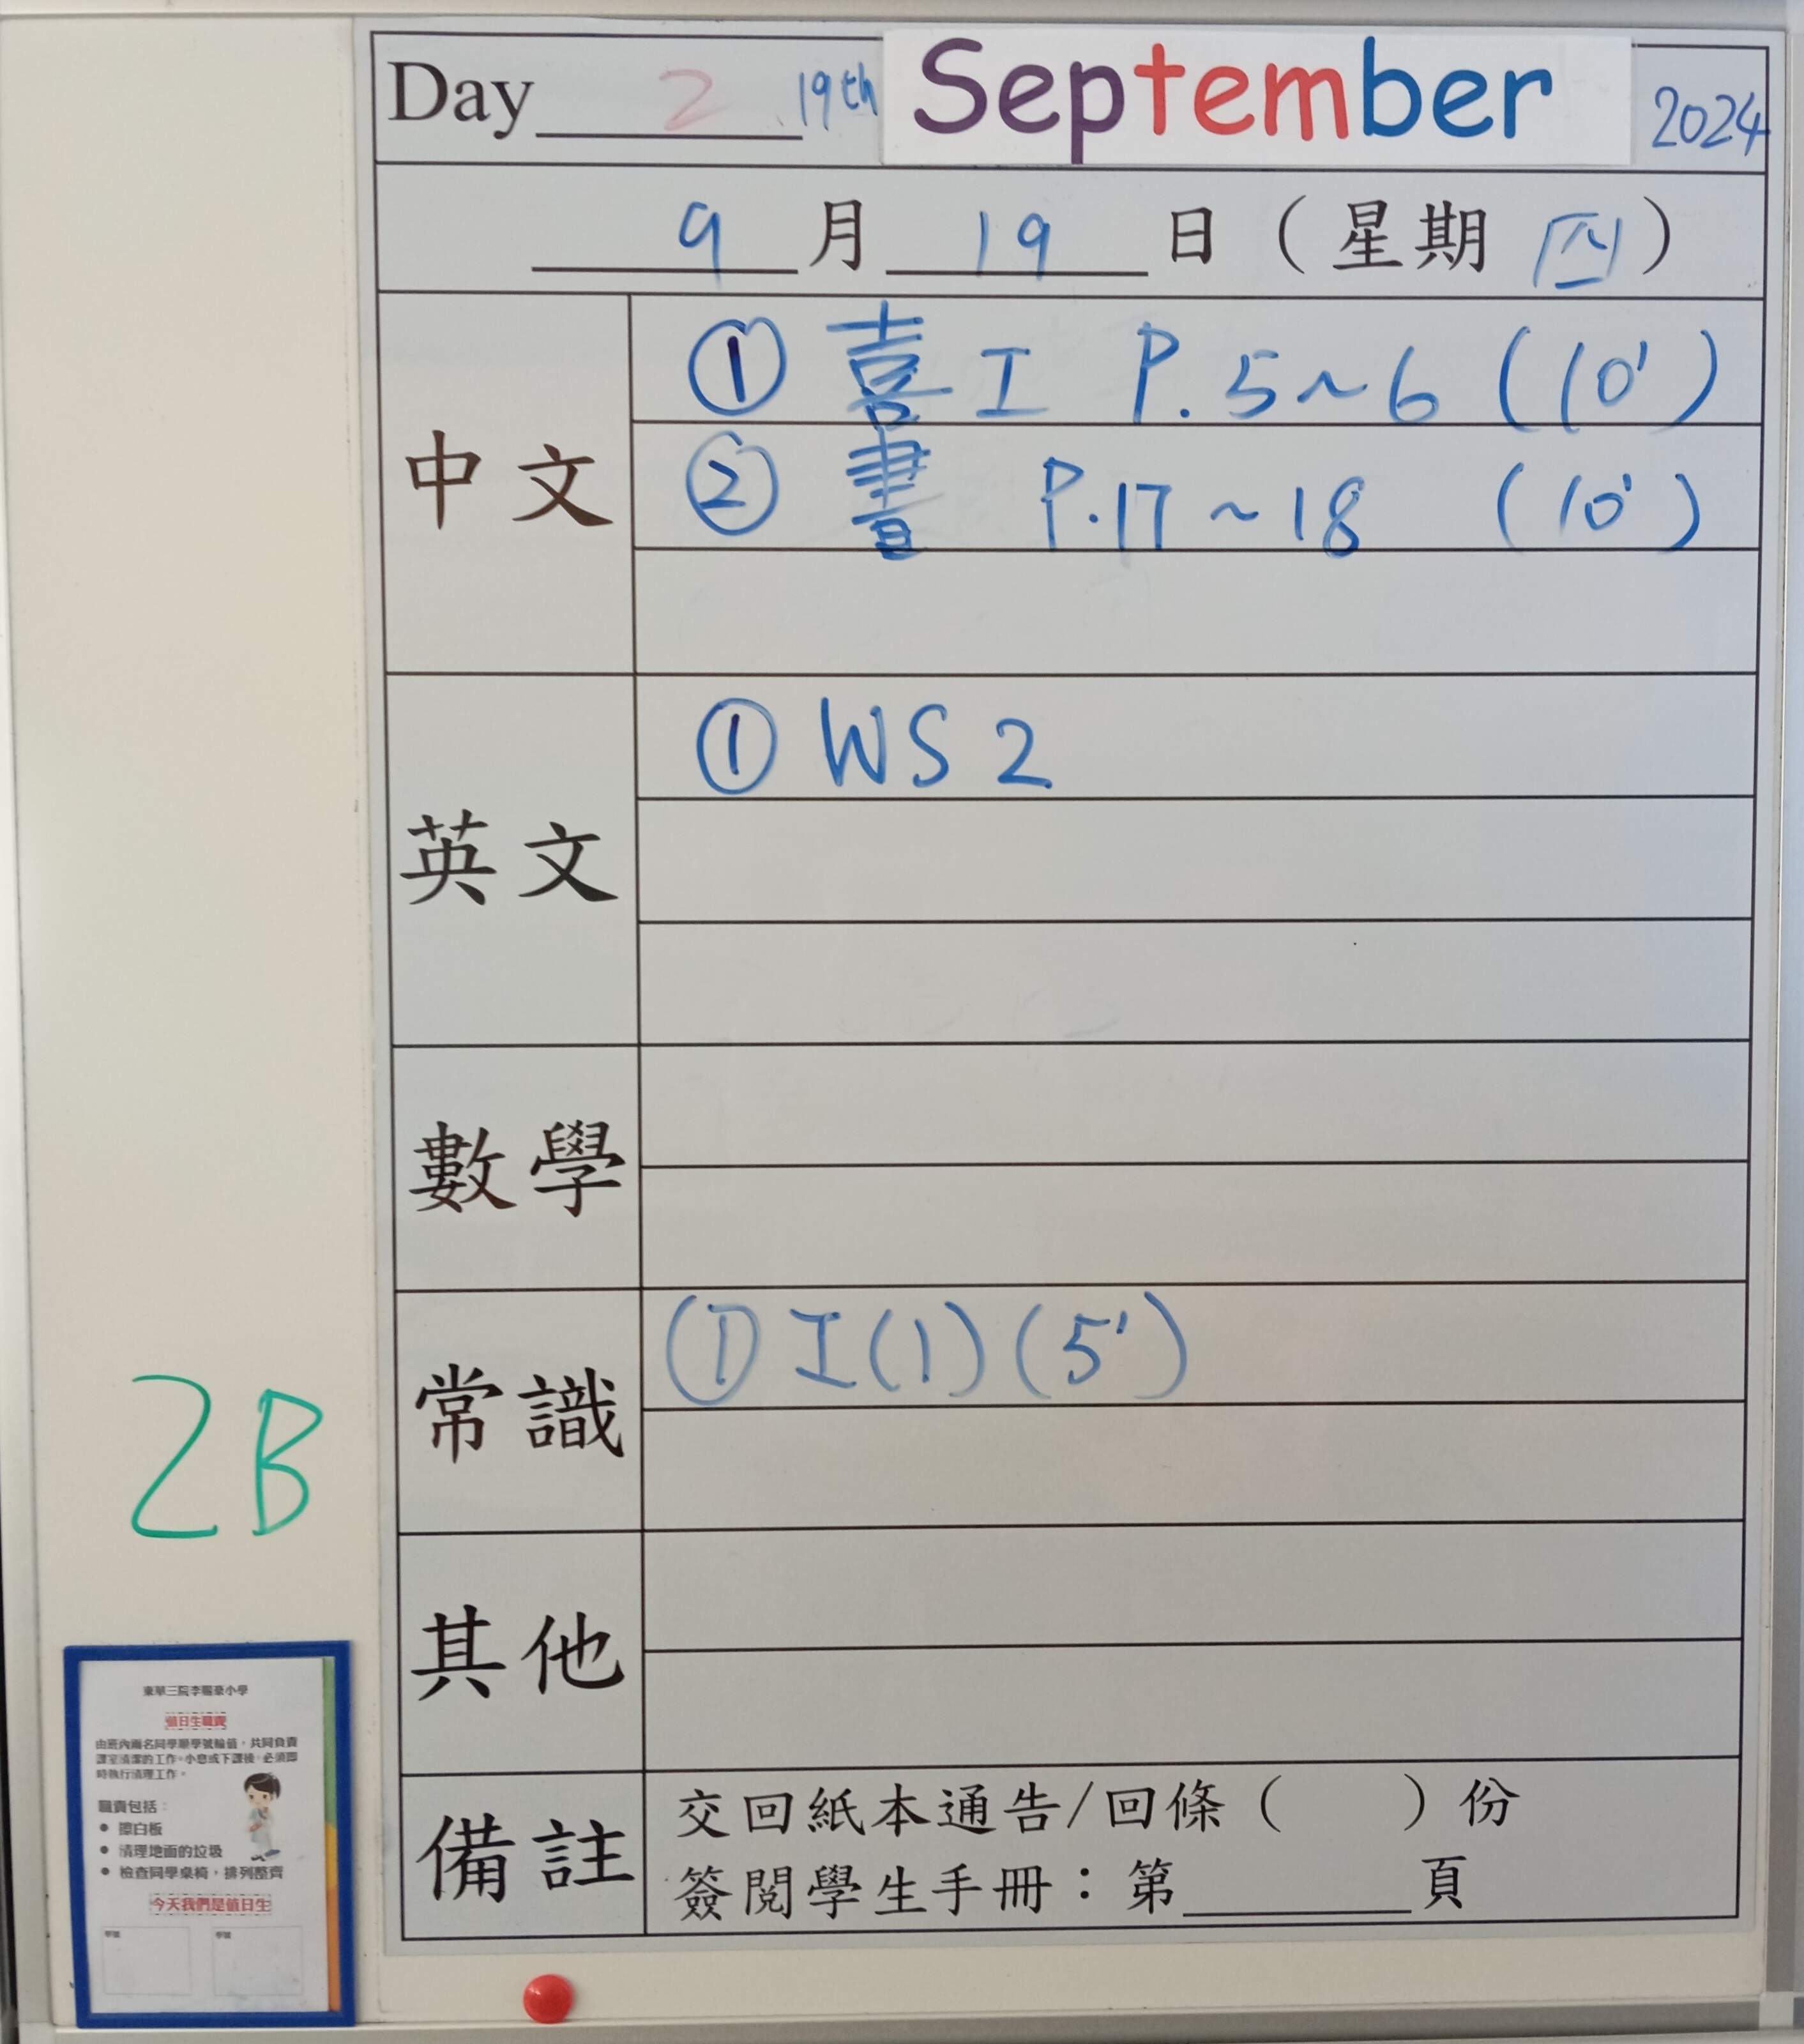 Day 2 19th September 2024
9月19日（星期四）
中文
① 喜 工 P.5~6 (10')
② 書 P.17~18 (10')
英文
① WS 2
數學
常識
① 工(1)(5')
其他
備註
交回紙本通告/回條（ ）份
簽閱學生手冊：第 頁
2B
東華三院李賜豪小學
值日生職責
由班內兩名同學順學號輪值，共同負責
課室清潔的工作。小息或下課後，必須即
時執行清理工作。
職責包括：
● 擦白板
● 清理地面的垃圾
● 檢查同學桌椅，排列整齊
今天我們是值日生
學號 學號